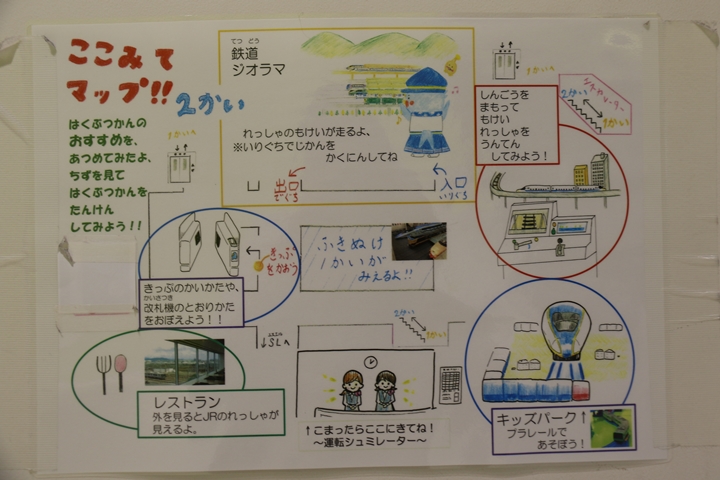 ここみて
マップ!!
2かい
はくぶつかんの
おすすめを、
あつめてみたよ、
ちずを見て
はくぶつかんを
たんけん
してみよう!!
1かいへ
てつどう
鉄道
ジオラマ
れっしゃのもけいが走るよ、
※いりぐちでじかんを
かくにんしてね
出口
でぐち
入口
いりぐち
1かいへ
2かい
エスカレーター
1かい
しんごうを
まもって
もけい
れっしゃを
うんてん
してみよう!
きっぷ
をかおう
きっぷのかいかたや、
かいさつき
改札機のとおりかた
をおぼえよう!!
ふきぬけ
1かいが
みえるよ!!
↓SLへ
2かい
1かい
レストラン
外を見るとJRのれっしゃが
見えるよ。
↑こまったらここにきてね!
～運転シュミレーター～
キッズパーク↑
プラレールで
あそぼう!